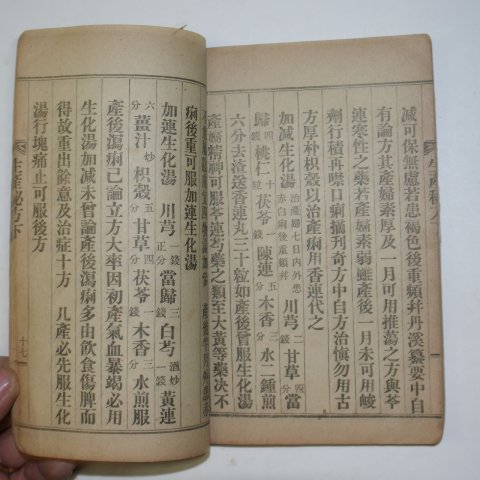 減可保無虞若患褐色後重頻并丹溪纂要中自
有論方其產婦素厚及一月可用推蕩之方與芩
連寒性之藥若產婦素弱雖產後一月未可用峻
劑行積再噤口痢摘刊奇方中自方治愼勿用古
方厚朴枳殼以治產痢用香連代之
加減生化湯 治產婦七日內外患赤白痢後重頻并 川芎二錢 甘草四分 當
歸四錢 桃仁十粒 茯苓一錢 陳連五分 木香三分 水二鍾煎
六分去渣送香連丸三十粒如產後曾服生化湯
產婦精神可服香連芎藥之類至大黃等藥決不
痢後重可服加連生化湯
加連生化湯 川芎一錢五分 當歸三錢 白芍一錢酒炒 黃連
六分薑汁炒 枳殼五分 甘草四分 茯苓一錢 木香三分 水煎服
產後瀉痢已論立方大率因初產氣血暴竭必用
生化湯加減未曾論產後瀉痢多由飮食傷脾而
得故重出餘意及治症十方 凡產必先服生化
湯行塊痛止可服後方
生產秘方下
十七